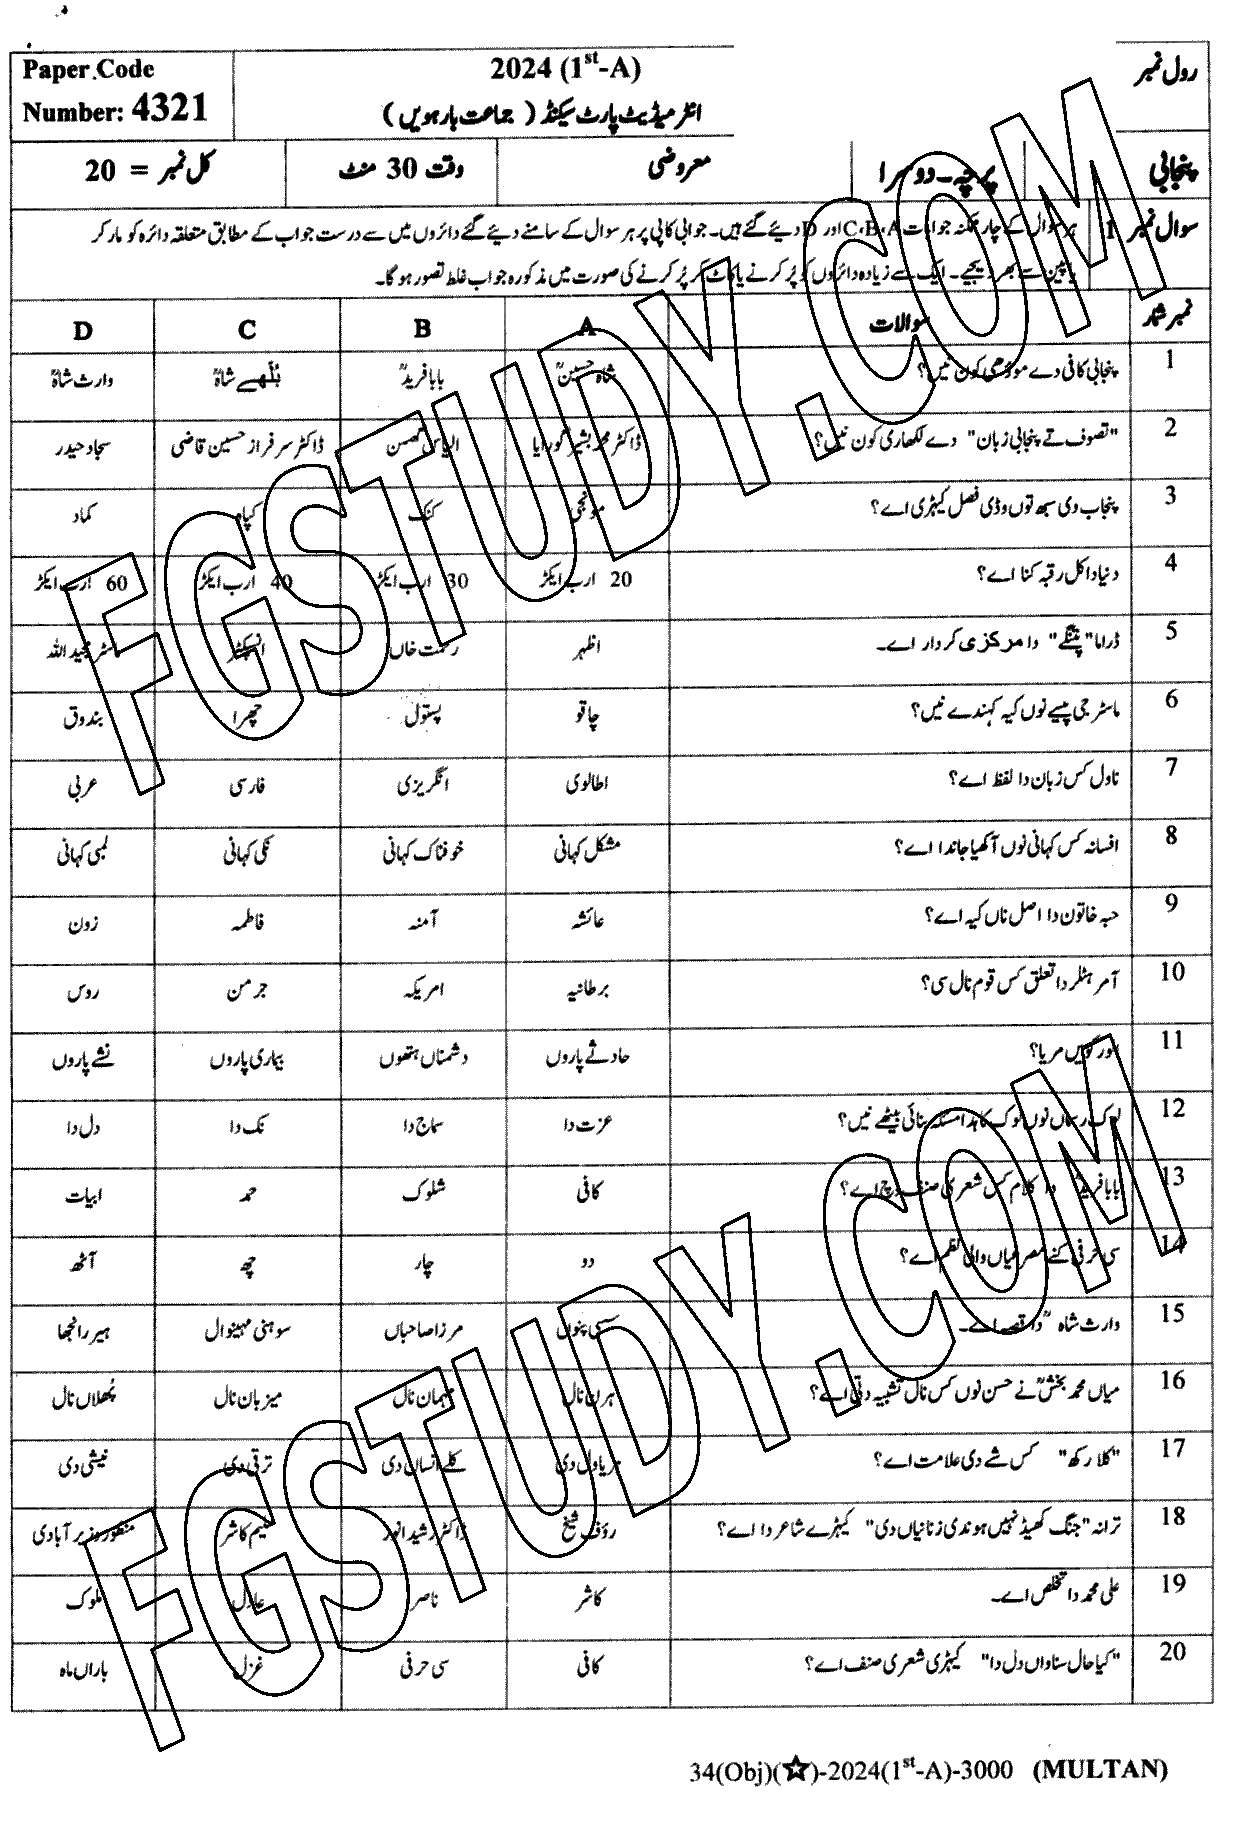 Paper Code
Number: 4321
2024 (1st-A)
انٹرمیڈیٹ پارٹ سیکنڈ ( جماعت بارہویں )
رول نمبر
پنجابی
پرچہ۔ دوسرا
معروضی
وقت 30 منٹ
کل نمبر = 20
سوال نمبر 1
ہر سوال کے چار ممکنہ جوابات A، B، C اور D دیئے گئے ہیں۔ جوابی کاپی پر ہر سوال کے سامنے دیئے گئے دائروں میں سے درست جواب کے مطابق متعلقہ دائرہ کو مارکر
یا پین سے بھر دیجیے۔ ایک سے زیادہ دائروں کو پُر کرنے یا کاٹ کر پُر کرنے کی صورت میں مذکورہ جواب غلط تصور ہو گا۔
نمبر شمار سوالات A B C D
1 پنجابی کافی دے موڈھی کون نیں؟ شاہ حسینؒ بابا فریدؒ بُلّھے شاہؒ وارث شاہؒ
2 "تصوف تے پنجابی زبان" دے لکھاری کون نیں؟ ڈاکٹر محمد بشیر گورایا الیاس گھمن ڈاکٹر سرفراز حسین قاضی سجاد حیدر
3 پنجاب دی سبھ توں وڈی فصل کیہڑی اے؟ مونجی کنک کپاہ کماد
4 دنیا دا کل رقبہ کنا اے؟ 20 ارب ایکڑ 30 ارب ایکڑ 40 ارب ایکڑ 60 ارب ایکڑ
5 ڈراما "پتنگے" دا مرکزی کردار اے۔ اظہر رحمت خاں انسپکٹر ماسٹر مجید اللہ
6 ماسٹر جی پیسے نوں کیہ کہندے نیں؟ چاقو پستول چھرا بندوق
7 ناول کس زبان دا لفظ اے؟ اطالوی انگریزی فارسی عربی
8 افسانہ کس کہانی نوں آکھیا جاندا اے؟ مشکل کہانی خوفناک کہانی نکی کہانی لمبی کہانی
9 حبہ خاتون دا اصل ناں کیہ اے؟ عائشہ آمنہ فاطمہ زون
10 آمر ہٹلر دا تعلق کس قوم نال سی؟ برطانیہ امریکہ جرمن روس
11 کویں مریا؟ حادثے پاروں دشمناں ہتھوں بیماری پاروں نشے پاروں
12 لوک رسماں نوں لوک کاہدا مسئلہ بنائی بیٹھے نیں؟ عزت دا سماج دا نک دا دل دا
13 بابا فریدؒ دا کلام کس شعری صنف وچ اے؟ کافی شلوک حمد ابیات
14 سی حرفی کنے مصرعیاں والی نظم اے؟ دو چار چھ آٹھ
15 وارث شاہؒ دا قصہ اے۔ سسی پنوں مرزا صاحباں سوہنی مہینوال ہیر رانجھا
16 میاں محمد بخشؒ نے حسن نوں کس نال تشبیہ دتی اے؟ ہرن نال مہمان نال میزبان نال پُھلاں نال
17 "کلا رکھ" کس شے دی علامت اے؟ ہریاول دی کلے انسان دی ترقی دی نیشی دی
18 ترانہ "جنگ کھیڈ نہیں ہوندی زنانیاں دی" کیہڑے شاعر دا اے؟ رؤف شیخ ڈاکٹر رشید انور سلیم کاشر منظور وزیر آبادی
19 علی محمد دا تخلص اے۔ کاشر ناصر عادل ملوک
20 "کیا حال سناواں دل دا" کیہڑی شعری صنف اے؟ کافی سی حرفی غزل باراں ماہ
34(Obj)(☆)-2024(1st-A)-3000 (MULTAN)
FGSTUDY.COM
FGSTUDY.COM